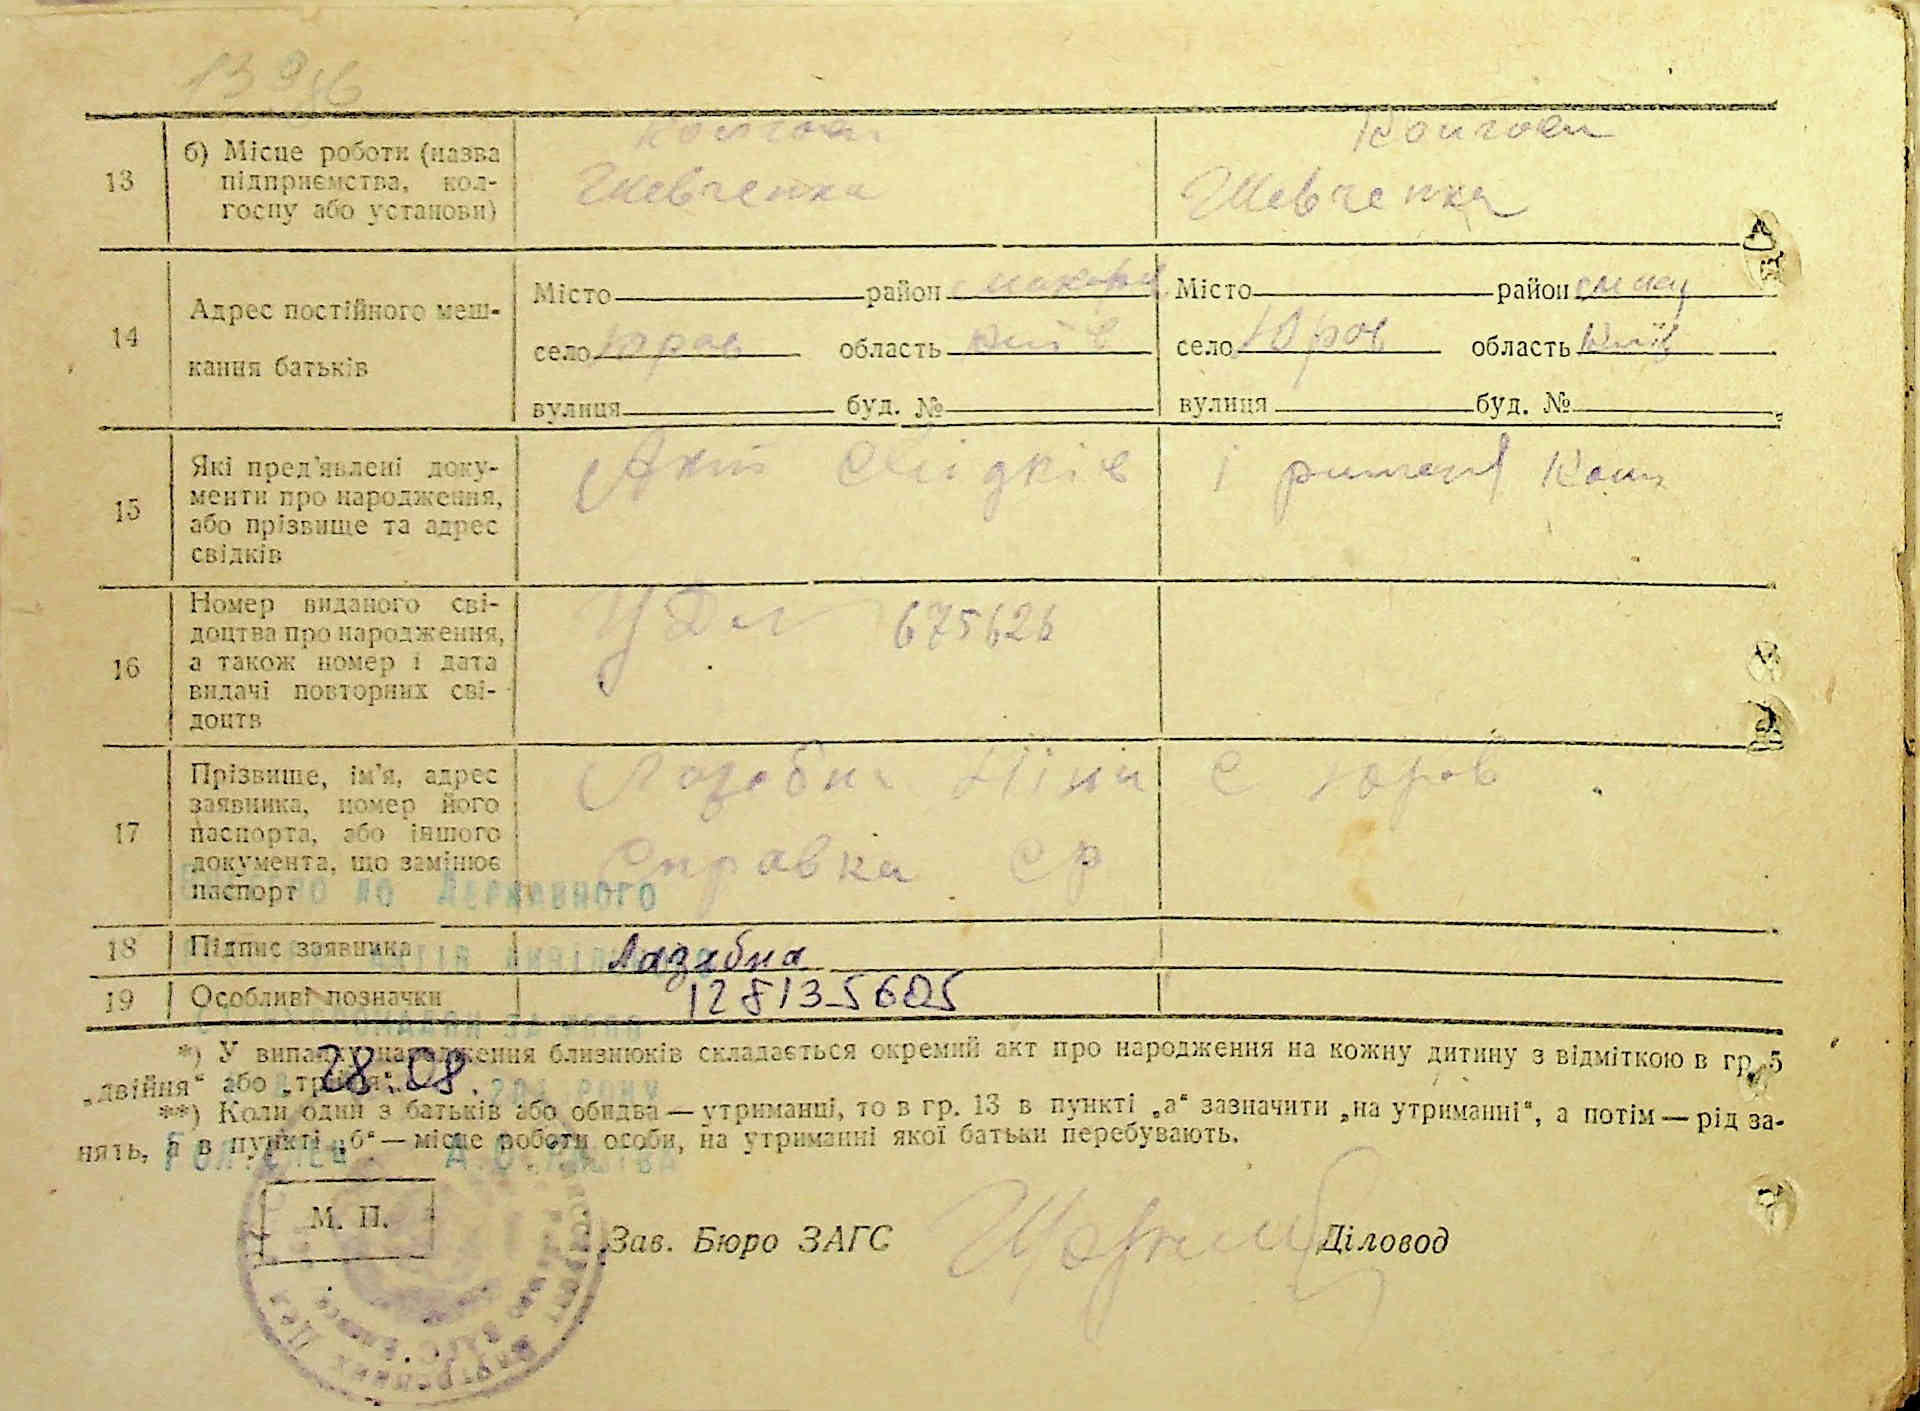 13
б) Місце роботи (назва
підприємства, кол-
госпу або установи)
Колгосп
Шевченка
Колгосп
Шевченка
14
Адрес постійного меш-
кання батьків
Місто район
село Юров область Київ
вулиця буд. №
Місто район
село Юров область Київ
вулиця буд. №
15
Які пред’явлені доку-
менти про народження,
або прізвище та адрес
свідків
Акт свідків і
16
Номер виданого сві-
доцтва про народження,
а також номер і дата
видачі повторних сві-
доцтв
675626
17
Прізвище, ім’я, адрес
заявника, номер його
паспорта, або іншого
документа, що замінює
паспорт
Лазебна с Юров
Справка ср
18 Підпис заявника Лазабна
19 Особливі позначки 128135605
*) У випадку народження близнюків складається окремий акт про народження на кожну дитину з відміткою в гр. 5
„двійня“ або „трійня“.
28.08.
**) Коли один з батьків або обидва — утриманці, то в гр. 13 в пункті „а“ зазначити „на утриманні“, а потім — рід за-
нять, а в пункті „б“ — місце роботи особи, на утриманні якої батьки перебувають.
М. П.
Зав. Бюро ЗАГС
Діловод